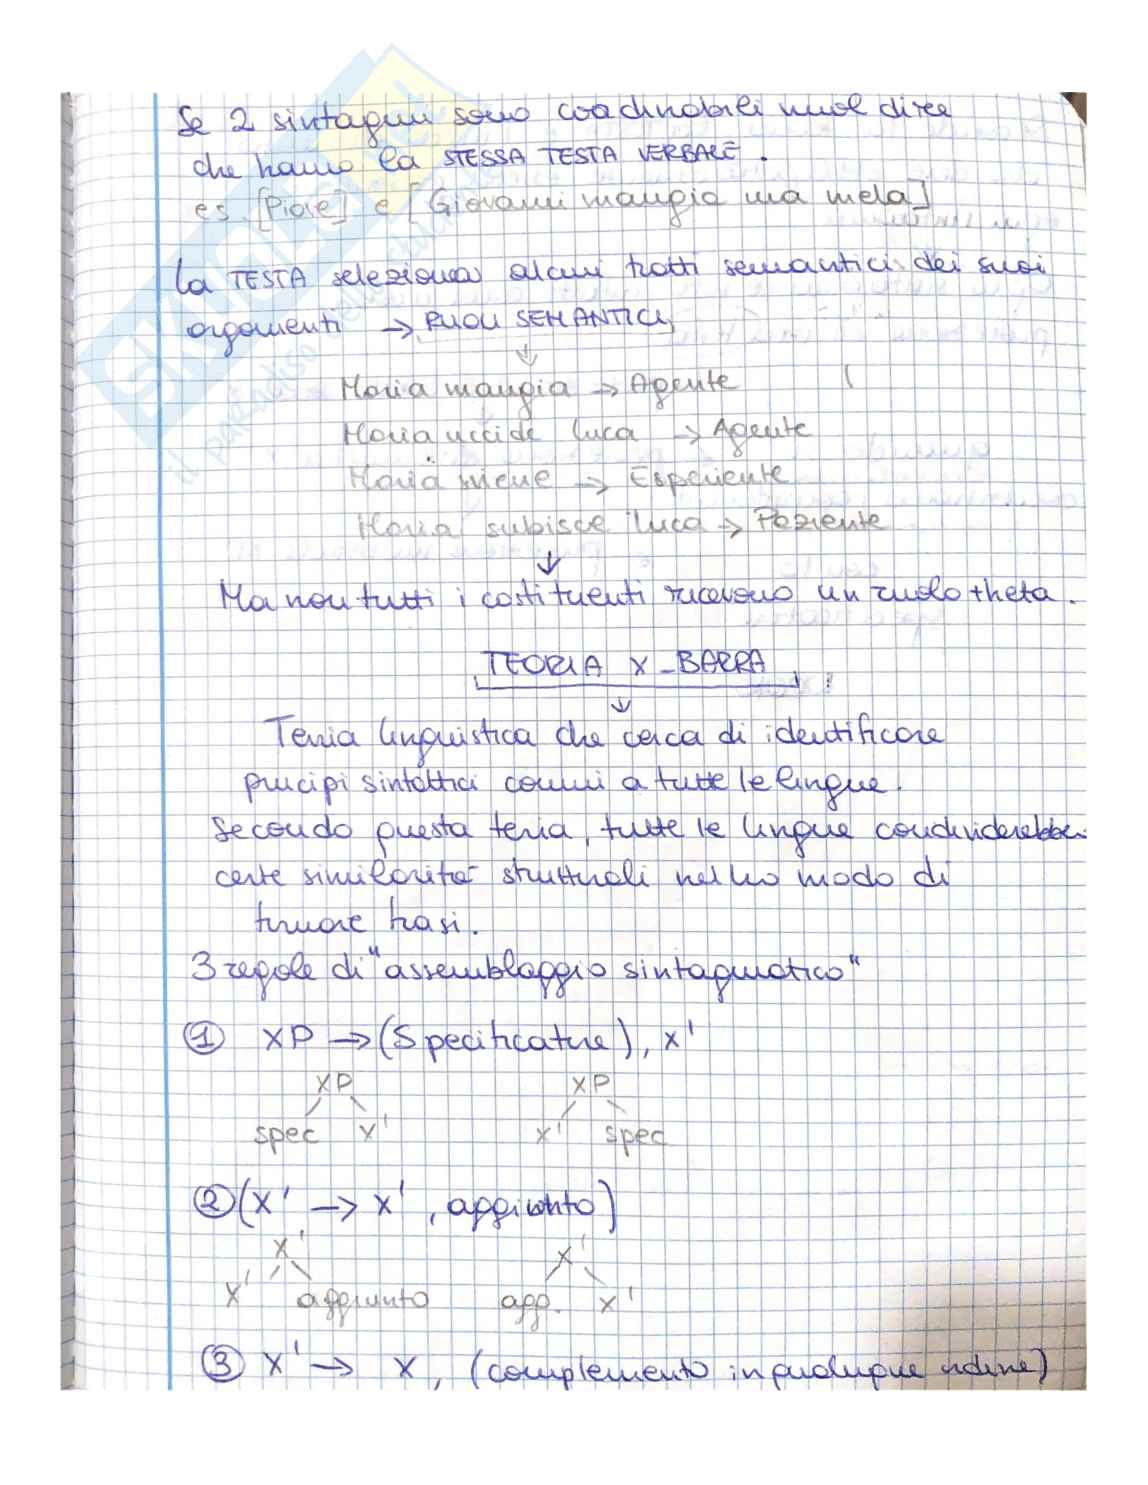 Se 2 sintagmi sono coordinabili vuol dire
che hanno la STESSA TESTA VERBALE.
es. [Piove] e [Giovanni mangia una mela]
La TESTA seleziona alcuni tratti semantici dei suoi
argomenti → RUOLI SEMANTICI
↓
Maria mangia → Agente
Maria uccide Luca → Agente
Maria sviene → Esperiente
Maria subisce Luca → Paziente
↓
Ma non tutti i costituenti ricevono un ruolo theta.
TEORIA X-BARRA
↓
Teoria linguistica che cerca di identificare
principi sintattici comuni a tutte le lingue.
Secondo questa teoria, tutte le lingue condividerebbero
certe similarità strutturali nel loro modo di
formare frasi.
3 regole di "assemblaggio sintagmatico"
① XP → (Specificatore), X'
XP XP
spec X' X' spec
② (X' → X', aggiunto)
X' X'
X' aggiunto agg. X'
③ X' → X, (complemento in qualunque ordine)
il paradiso